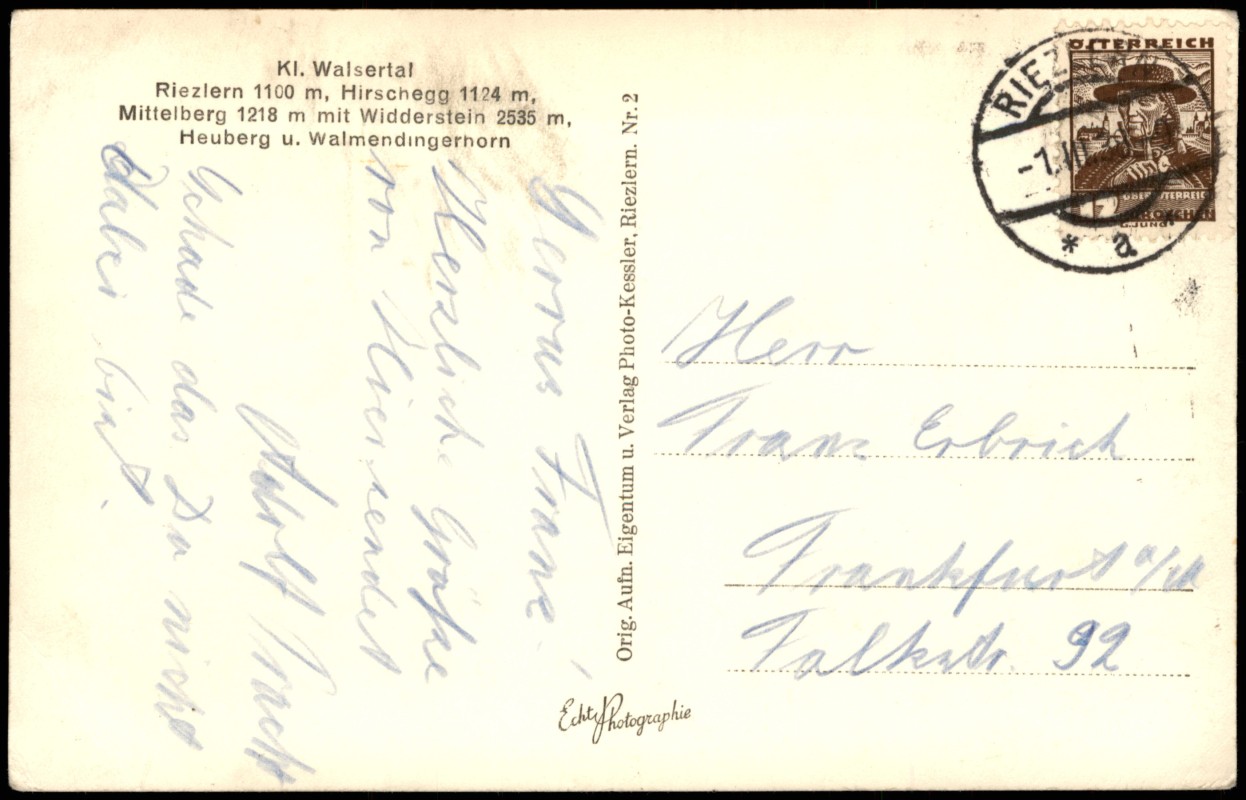 Kl. Walsertal
Riezlern 1100 m, Hirschegg 1124 m,
Mittelberg 1218 m mit Widderstein 2535 m,
Heuberg u. Walmendingerhorn
Servus Franz!
Herzliche Grüße
von hier sendet
Adolf
Schade das Du nicht
dabei bist.
Orig. Aufn. Eigentum u. Verlag Photo-Kessler, Riezlern. Nr. 2
Echte Photographie
ÖSTERREICH
OBERÖSTERREICH
GROSCHEN
RIEZLERN
* a
Herr
Franz Erbrich
Frankfurt a/M
Falkstr. 92